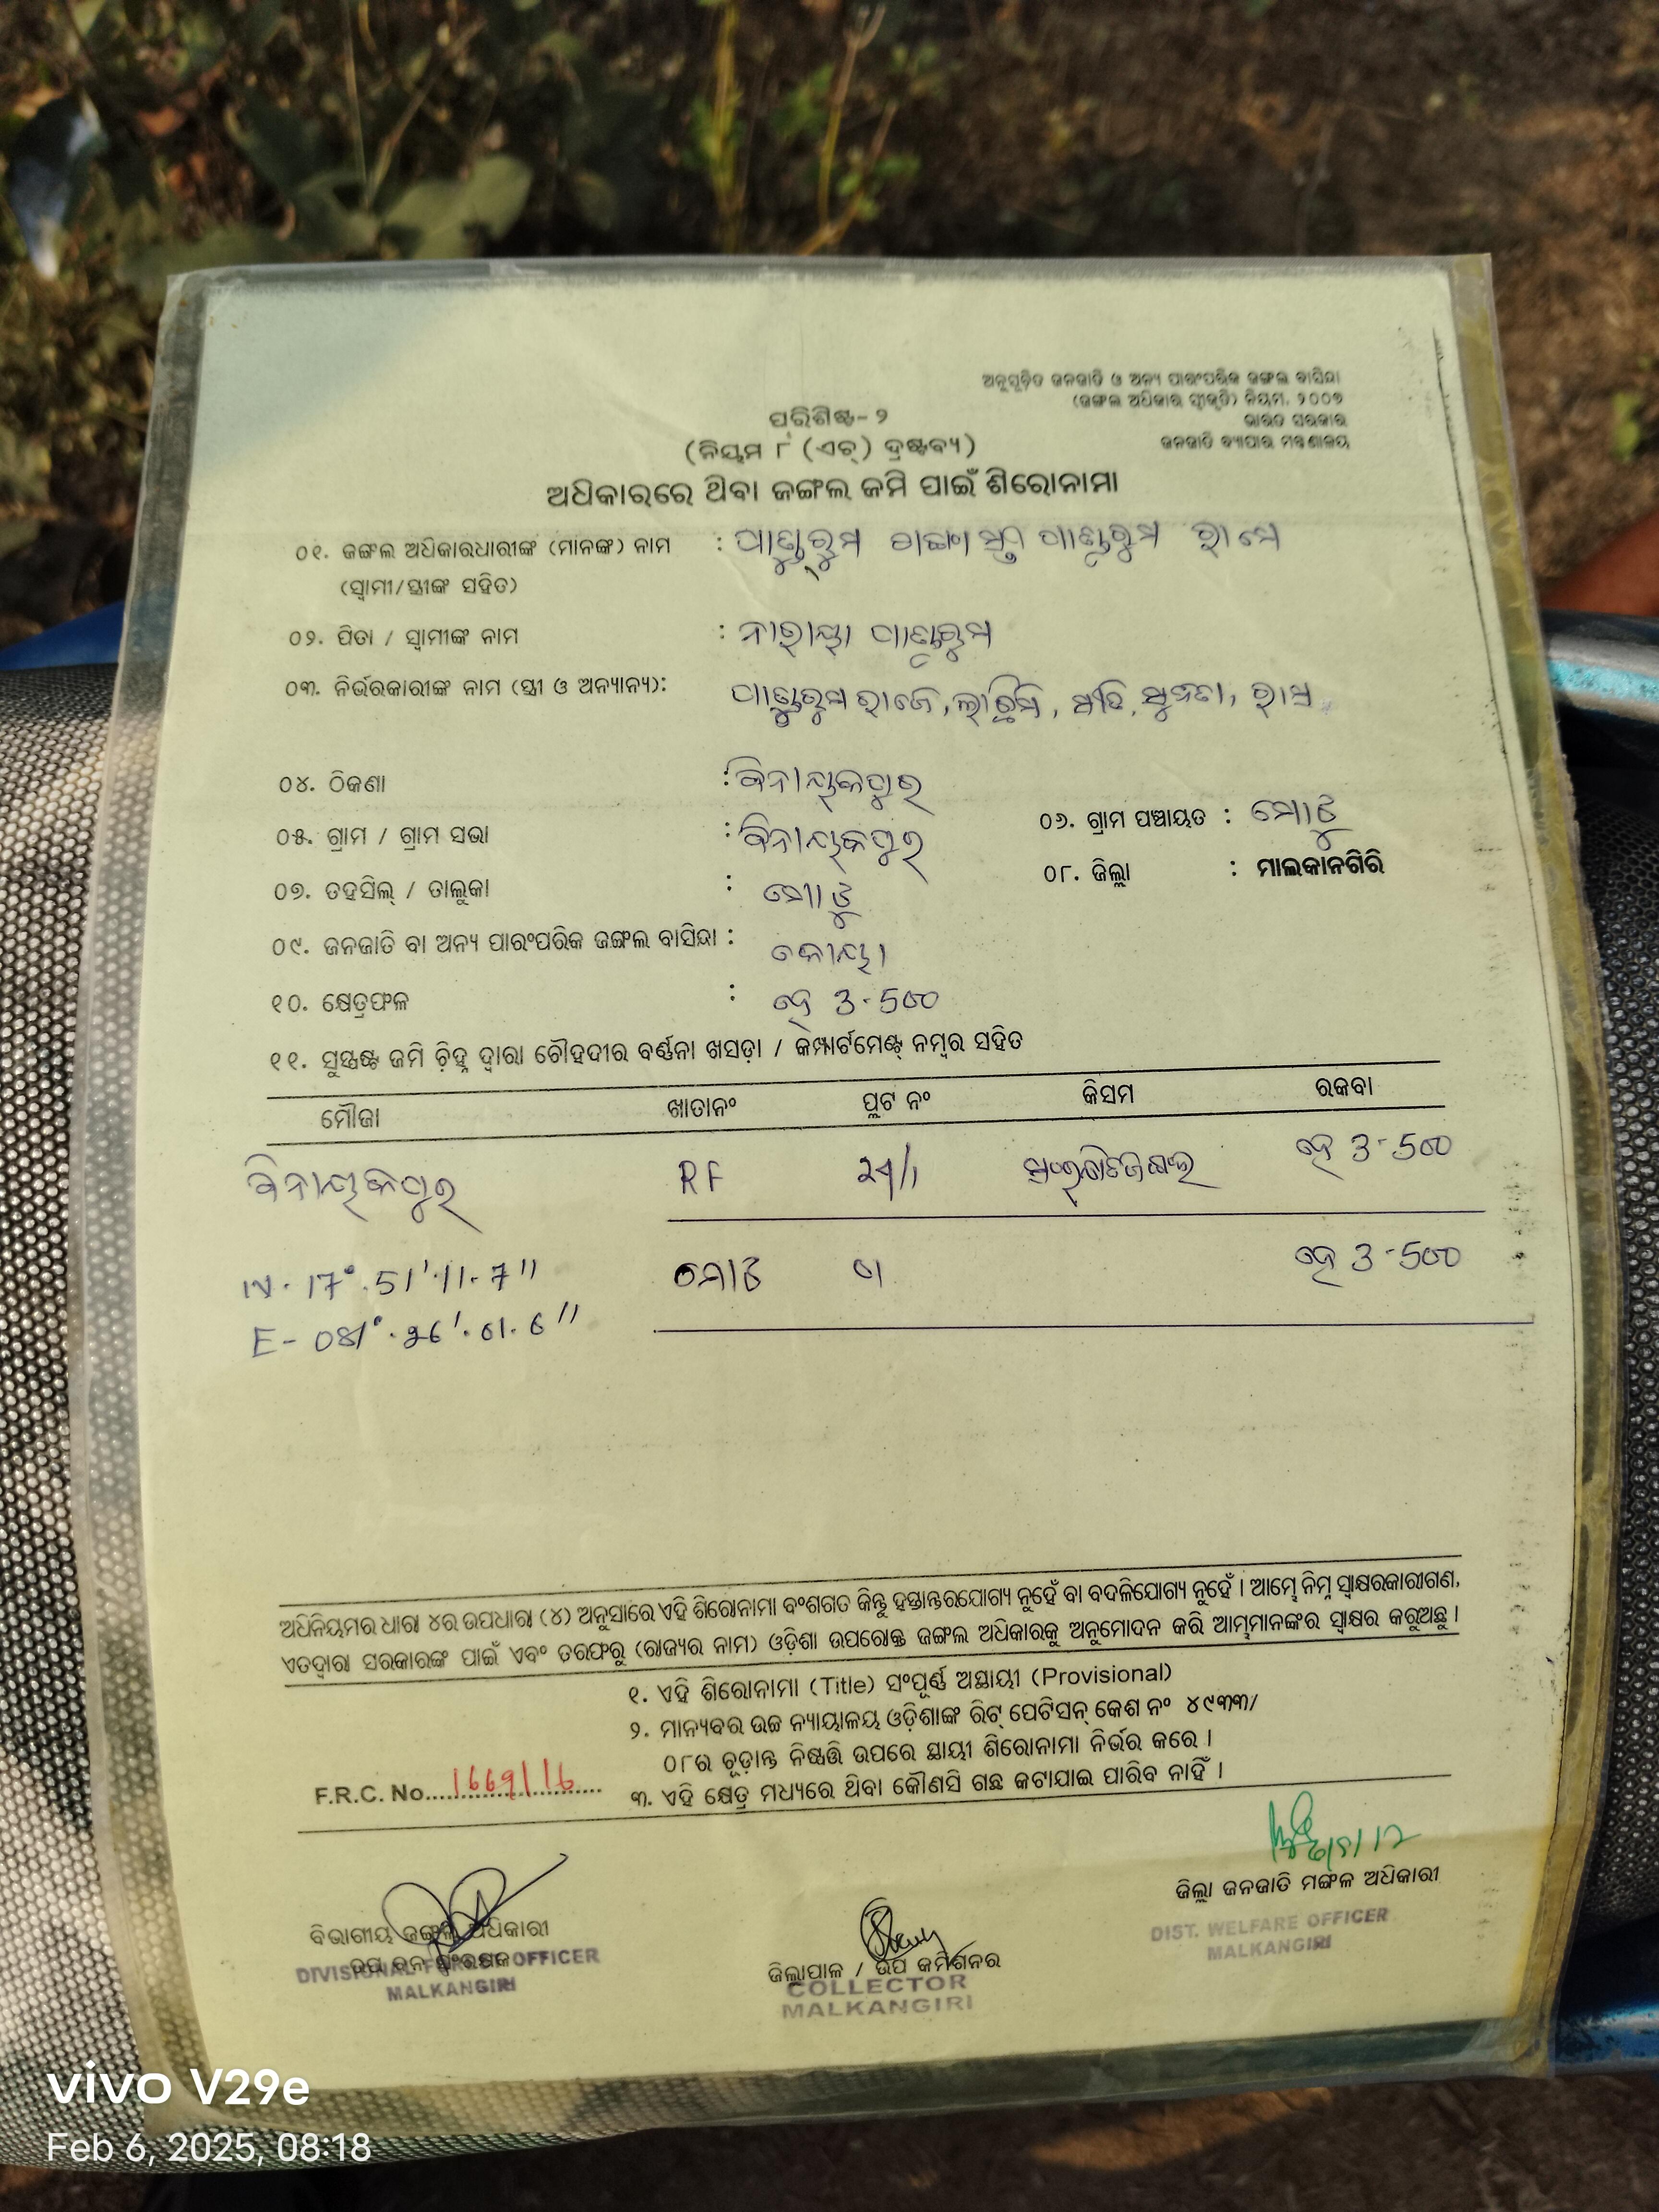 ଅନୁସୂଚିତ ଜନଜାତି ଓ ଅନ୍ୟ ପାରଂପରିକ ଜଙ୍ଗଲ ବାସିନ୍ଦା
(ଜଙ୍ଗଲ ଅଧିକାର ସ୍ୱୀକୃତି) ନିୟମ, ୨୦୦୭
ଭାରତ ସରକାର
ଜନଜାତି ବ୍ୟାପାର ମନ୍ତ୍ରଣାଳୟ
ପରିଶିଷ୍ଟ-୨
(ନିୟମ ୮ (ଏଚ୍) ଦ୍ରଷ୍ଟବ୍ୟ)
ଅଧିକାରରେ ଥିବା ଜଙ୍ଗଲ ଜମି ପାଇଁ ଶିରୋନାମା
୦୧. ଜଙ୍ଗଲ ଅଧିକାରଧାରୀଙ୍କ (ମାନଙ୍କ) ନାମ :
(ସ୍ୱାମୀ/ସ୍ତ୍ରୀଙ୍କ ସହିତ)
୦୨. ପିତା / ସ୍ୱାମୀଙ୍କ ନାମ :
୦୩. ନିର୍ଭରକାରୀଙ୍କ ନାମ (ସ୍ତ୍ରୀ ଓ ଅନ୍ୟାନ୍ୟ):
୦୪. ଠିକଣା : ବିନାୟକପୁର
୦୫. ଗ୍ରାମ / ଗ୍ରାମ ସଭା : ବିନାୟକପୁର ୦୬. ଗ୍ରାମ ପଞ୍ଚାୟତ : ମୋଟୁ
୦୭. ତହସିଲ୍ / ତାଲୁକା : ମୋଟୁ ୦୮. ଜିଲ୍ଲା : ମାଲକାନଗିରି
୦୯. ଜନଜାତି ବା ଅନ୍ୟ ପାରଂପରିକ ଜଙ୍ଗଲ ବାସିନ୍ଦା : କୋୟା
୧୦. କ୍ଷେତ୍ରଫଳ : ହେ 3-500
୧୧. ସୁସ୍ପଷ୍ଟ ଜମି ଚିହ୍ନ ଦ୍ୱାରା ଚୌହଦୀର ବର୍ଣ୍ଣନା ଖସଡ଼ା / କମ୍ପାର୍ଟମେଣ୍ଟ ନମ୍ବର ସହିତ
ମୌଜା ଖାତାନଂ ପ୍ଲଟ ନଂ କିସମ ରକବା
ବିନାୟକପୁର RF ହେ 3-500
N. 17°.51'.11.7" ମୋଟ ହେ 3-500
E- 081°
ଅଧିନିୟମର ଧାରା ୪ର ଉପଧାରା (୪) ଅନୁସାରେ ଏହି ଶିରୋନାମା ବଂଶଗତ କିନ୍ତୁ ହସ୍ତାନ୍ତରଯୋଗ୍ୟ ନୁହେଁ ବା ବଦଳିଯୋଗ୍ୟ ନୁହେଁ । ଆମ୍ଭେ ନିମ୍ନ ସ୍ୱାକ୍ଷରକାରୀଗଣ,
ଏତଦ୍ୱାରା ସରକାରଙ୍କ ପାଇଁ ଏବଂ ତରଫରୁ (ରାଜ୍ୟର ନାମ) ଓଡ଼ିଶା ଉପରୋକ୍ତ ଜଙ୍ଗଲ ଅଧିକାରକୁ ଅନୁମୋଦନ କରି ଆମ୍ଭମାନଙ୍କର ସ୍ୱାକ୍ଷର କରୁଅଛୁ ।
୧. ଏହି ଶିରୋନାମା (Title) ସଂପୂର୍ଣ୍ଣ ଅସ୍ଥାୟୀ (Provisional)
୨. ମାନ୍ୟବର ଉଚ୍ଚ ନ୍ୟାୟାଳୟ ଓଡ଼ିଶାଙ୍କ ରିଟ୍ ପେଟିସନ୍ କେଶ ନଂ ୪୯୩୩/
୦୮ର ଚୂଡ଼ାନ୍ତ ନିଷ୍ପତ୍ତି ଉପରେ ସ୍ଥାୟୀ ଶିରୋନାମା ନିର୍ଭର କରେ ।
୩. ଏହି କ୍ଷେତ୍ର ମଧ୍ୟରେ ଥିବା କୌଣସି ଗଛ କଟାଯାଇ ପାରିବ ନାହିଁ ।
F.R.C. No. 1669/16
ଜିଲ୍ଲା ଜନଜାତି ମଙ୍ଗଳ ଅଧିକାରୀ
DIST. WELFARE OFFICER
MALKANGIRI
ବିଭାଗୀୟ ଜଙ୍ଗଲ ଅଧିକାରୀ
ଉପ ବନ ସଂରକ୍ଷକ
DIVISIONAL FOREST OFFICER
MALKANGIRI
ଜିଲ୍ଲାପାଳ / ଉପ କମିଶନର
COLLECTOR
MALKANGIRI
vivo V29e
Feb 6, 2025, 08:18